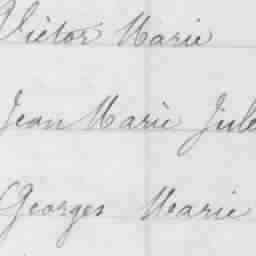 Victor Marie
Jean Marie Jule
Georges Marie